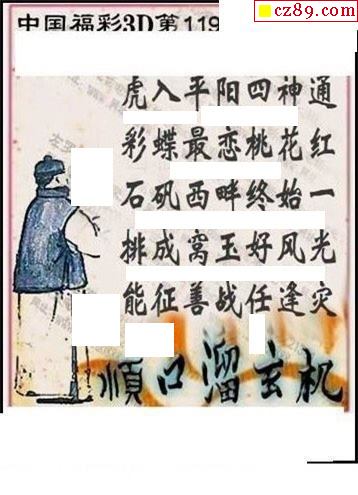 cz89.com
中国福彩3D第119
虎入平阳四神通
彩蝶最恋桃花红
石矶西畔终始一
排成窝玉好风光
能征善战任逢灾
順口溜玄机